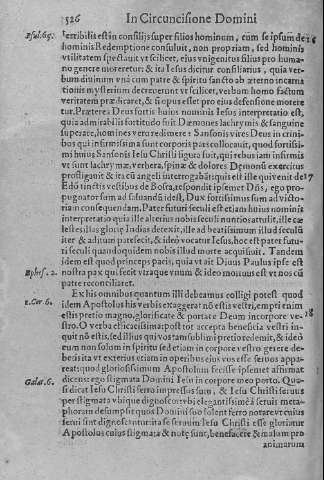 526 In Circuncisione Domini
Psal. 65. terribilis est in consilijs super filios hominum, cùm se ipsum de
hominis Redemptione consuluit, non propriam, sed hominis
vtilitatem spectauit vt scilicet, eius vnigenitus filius pro huma-
no genere moreretur: & ita Iesus dicitur consiliarius, quia ver-
bum diuinum vnà cum patre & spiritu sancto ab æterno incarna
tionis mysterium decreuerunt vt scilicet, verbum homo factum
veritatem prædicaret, & si opus esset pro eius defensione morere
tur. Præterea Deus fortis huius nominis Iesus interpretatio est,
quia admirabilis fortitudo fuit Dæmones lachrymis & sanguine
superare, homines vero redimere: Sansonis vires Deus in crini-
bus qui infirmissima sunt corporis pars collocauit, quod fortissi-
mi huius Sansonis Iesu Christi figura fuit, qui rebus tam infirmis
vt sunt lachrymæ, verbera, spinæ & dolores Dæmonis exercitus
prostigauit & ita cū angeli interrogabāt quis est ille qui venit de
17
Edō tinctis vestibus de Bosra, respondit ipsemet Dn̄s, ego pro-
pugnator sum ad saluandū id est, Dux fortissimus sum ad victo-
riam consequendam. Pater futuri seculi est etiam huius nominis
interpretatio quia ille alterius nobis seculi nuntios attulit, ille cæ
lestes illas gloriæ Indias detexit, ille ad beatissimum illud seculū
iter & aditum patefecit, & ideò vocatur Iesus, hoc est pater futu-
ri seculi quandoquidem nobis illud morte acquisiuit. Tandem
idem est quod princeps pacis, quia vt ait Diuus Paulus ipse est
Ephes. 2. nostra pax qui fecit vtraque vnum & ideo mortuus est vt nos cū
patre reconciliaret.
Ex his omnibus quantum illi debeamus colligi potest quod
1. Cor. 6. idem Apostolus his verbis exaggerat nō estis vestri, empti enim
estis pretio magno, glorificate & portate Deum in corpore ve-
18
stro. O verba efficacissima: post tot accepta beneficia vestri in-
quit nō estis, sed illius qui vos tam sublimi pretio redemit, & ideò
eum non solum in spiritu sed etiam in corpore vestro gerere de-
betis ita vt exterius etiam in operibus eius vos esse seruos appa-
reat: quod gloriosissimum Apostolum fecisse ipsemet affirmat
Galat. 6. dicens: ego stigmata Domini Iesu in corpore meo porto. Qua-
si dicat Iesu Christi ferro impressus sum, & Iesu Christi seruus
per stigmata vbique dignoscor: vbi elegantissimè à seruis meta-
phoram desumpsit quos Domini suo solent ferro notare vt cuius
serui sint dignoscantur: ita se seruum Iesu Christi esse gloriatur
Apostolus cuius stigmata & notę sunt, benefacere & malum pro
animarum